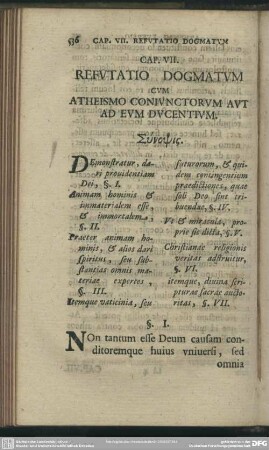 536 CAP. VII. REFVTATIO DOGMATVM
CAP. VII.
REFVTATIO DOGMATVM
CVM
ATHEISMO CONIVNCTORVM AVT
AD EVM DVCENTIVM.
Σύνοψις.
DEmonstratur, da-
ri providentiam
Dei, §. I.
Animam hominis &
immaterialem esse,
& immortalem,
§. II.
Praeter animam ho-
minis, & alios dari
spiritus, seu sub-
stantias omnis ma-
teriae expertes,
§. III.
Itemque vaticinia, seu
futurorum, & qui-
dem contingentium
praedictiones, quae
soli Deo sint tri-
buendae, §. IV.
Vt & miracula, pro-
prie sic dicta, §. V.
Christianae religionis
veritas adstruitur,
§. VI.
itemque, divina scri-
pturae sacrae aucto-
ritas, §. VII.
§. I.
NOn tantum esse Deum causam con-
ditoremque huius vniuersi, sed
omnia